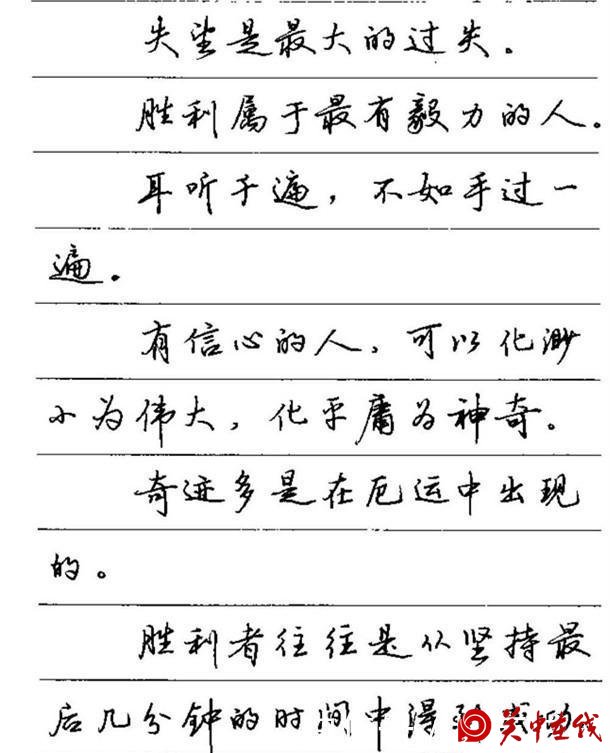 失望是最大的过失。
胜利属于最有毅力的人。
耳听千遍，不如手过一
遍。
有信心的人，可以化渺
小为伟大，化平庸为神奇。
奇迹多是在厄运中出现
的。
胜利者往往是从坚持最
后几分钟的时间中得到成功